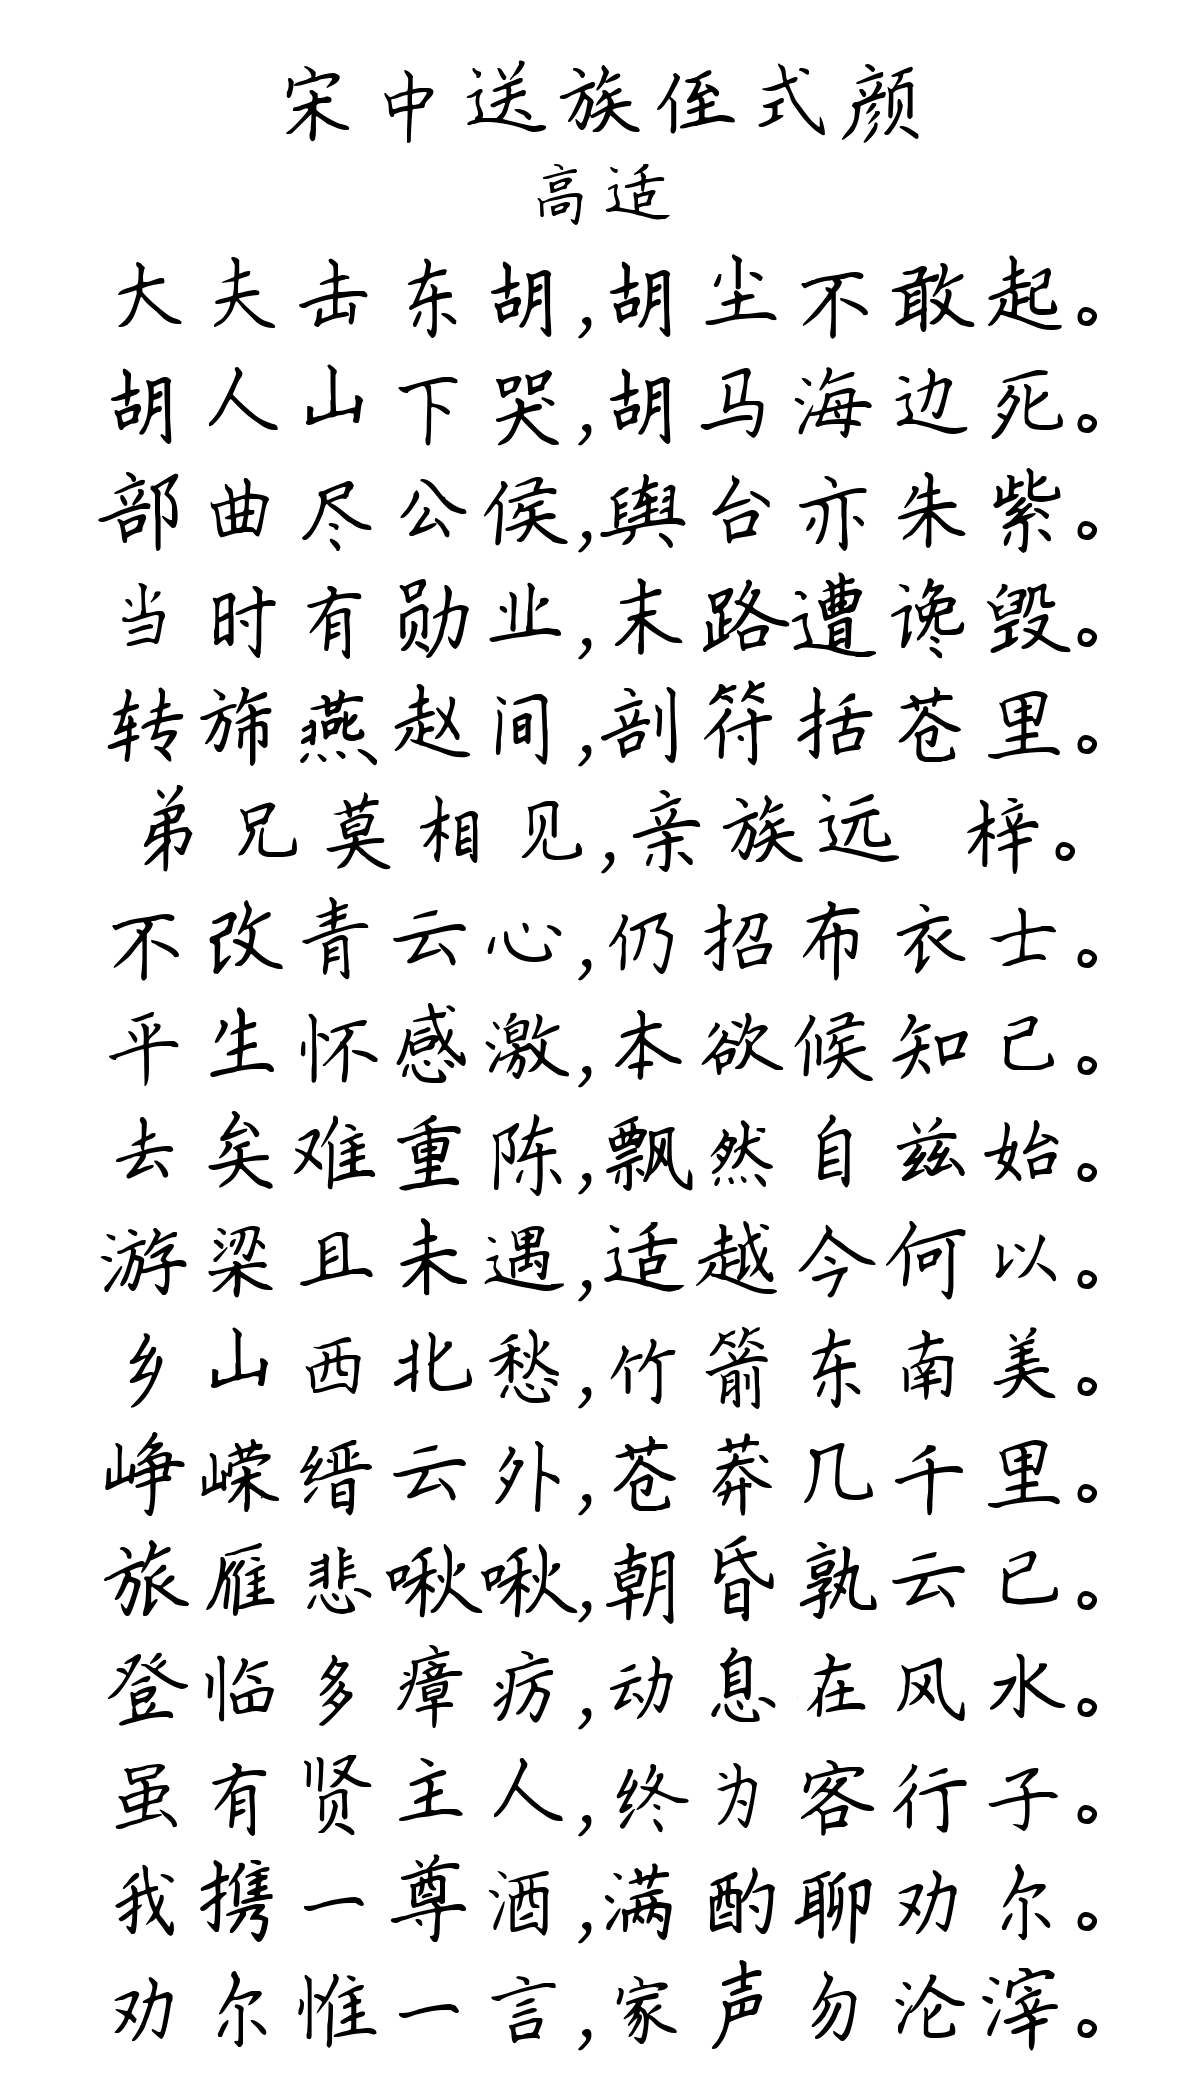 宋中送族侄式颜
高适
大夫击东胡,胡尘不敢起。
胡人山下哭,胡马海边死。
部曲尽公侯,舆台亦朱紫。
当时有勋业,末路遭谗毁。
转旆燕赵间,剖符括苍里。
弟兄莫相见,亲族远 梓。
不改青云心,仍招布衣士。
平生怀感激,本欲候知己。
去矣难重陈,飘然自兹始。
游梁且未遇,适越今何以。
乡山西北愁,竹箭东南美。
峥嵘缙云外,苍莽几千里。
旅雁悲啾啾,朝昏孰云已。
登临多瘴疠,动息在风水。
虽有贤主人,终为客行子。
我携一尊酒,满酌聊劝尔。
劝尔惟一言,家声勿沦滓。